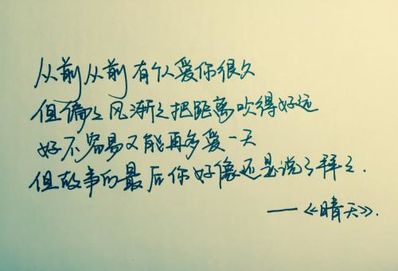 从前从前有个人爱你很久
但偏々风渐々把距离吹得好远
好不容易又能再多爱一天
但故事的最后你好像还是说了拜々.
——《晴天》.